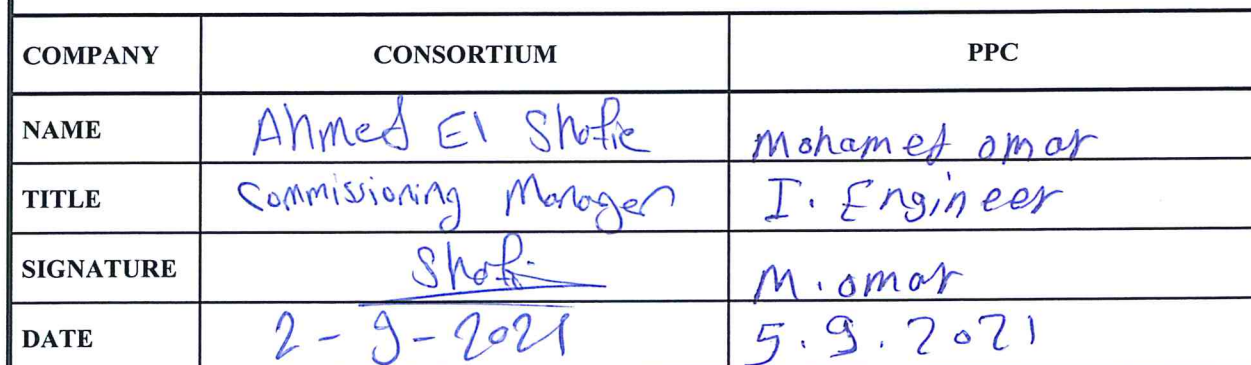 COMPANY CONSORTIUM PPC
NAME Ahmed El Shafie Mohamed omar
TITLE Commissioning Manager I. Engineer
SIGNATURE Shafi M. omar
DATE 2-9-2021 5.9.2021